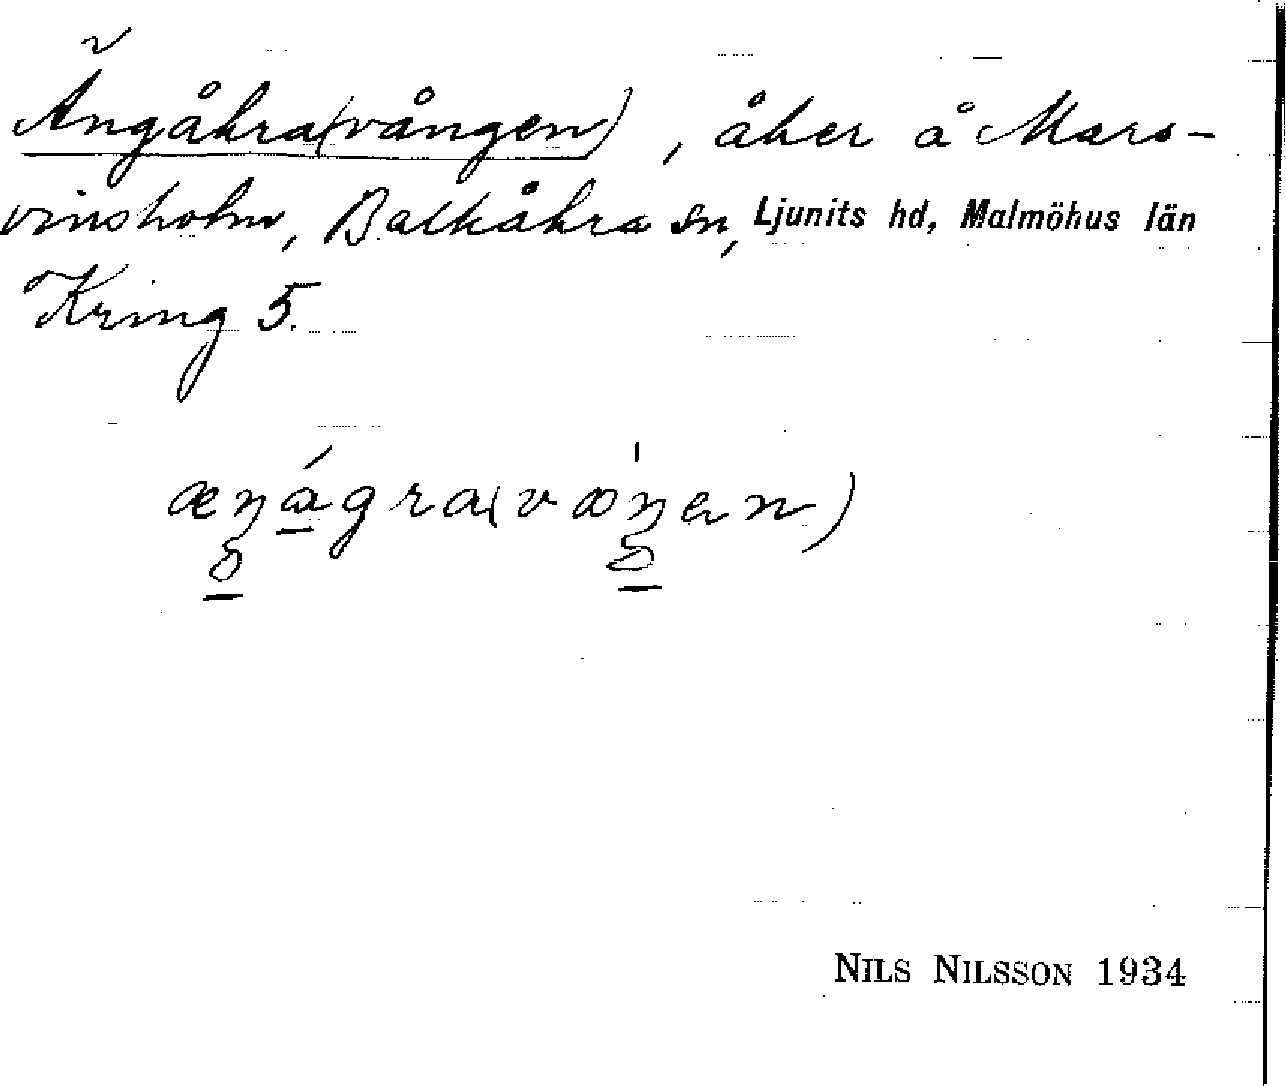 Ängåkra(vången), åker å Mars-
vinsholm, Balkåkra sn, Ljunits hd, Malmöhus län
Kring 5.
NILS NILSSON 1934